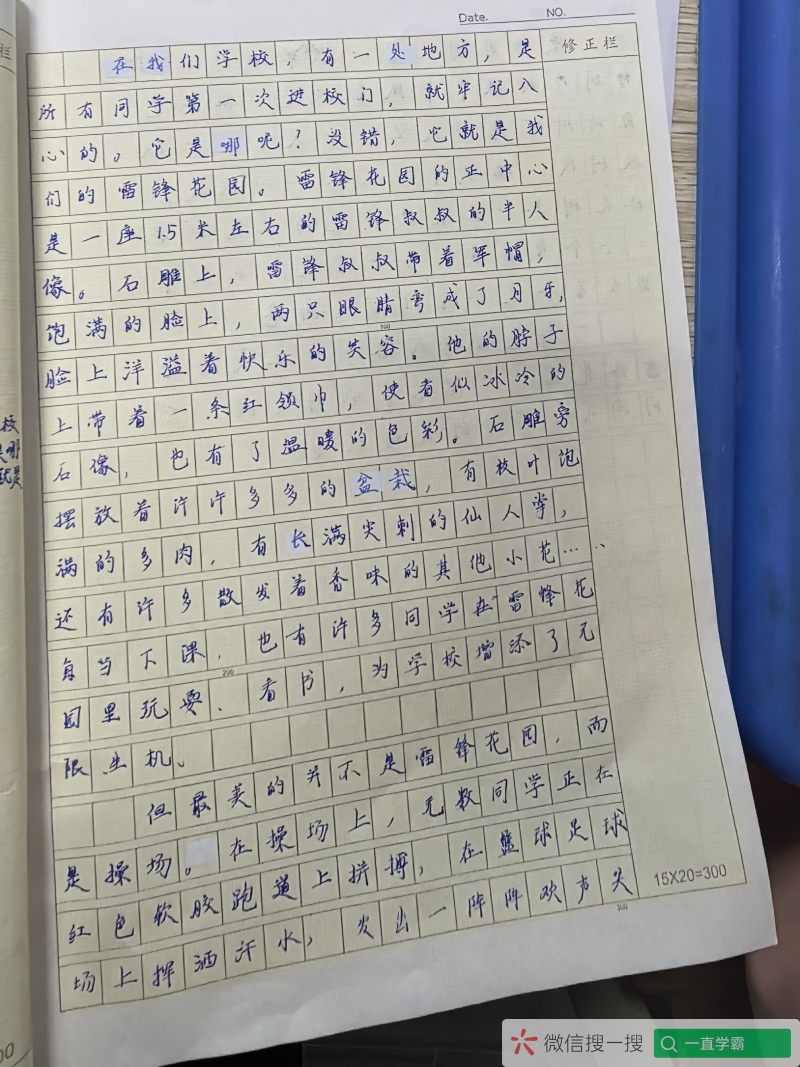 Date. NO.
修正栏
在我们学校，有一处地方，是
所有同学第一次进校门，就牢记入
心的。它是哪呢？没错，它就是我
们的雷锋花园。雷锋花园的正中心
是一座1.5米左右的雷锋叔叔的半人
像。石雕上，雷锋叔叔带着军帽，
饱满的脸上，两只眼睛弯成了月牙，
100
脸上洋溢着快乐的笑容。他的脖子
上带着一条红领巾，使看似冰冷的
石像，也有了温暖的色彩。石雕旁
摆放着许许多多的盆栽，有枝叶饱
满的多肉，有长满尖刺的仙人掌，
还有许多散发着香味的其他小花……
每当下课，也有许多同学在雷锋花
200
园里玩耍、看书，为学校增添了无
限生机。
但最美的并不是雷锋花园，而
是操场。在操场上，无数同学正在
红色软胶跑道上拼搏，在篮球足球
场上挥洒汗水，发出一阵阵欢声笑
300
15X20=300
校
是哪
就是
00
栏
微信搜一搜
一直学霸